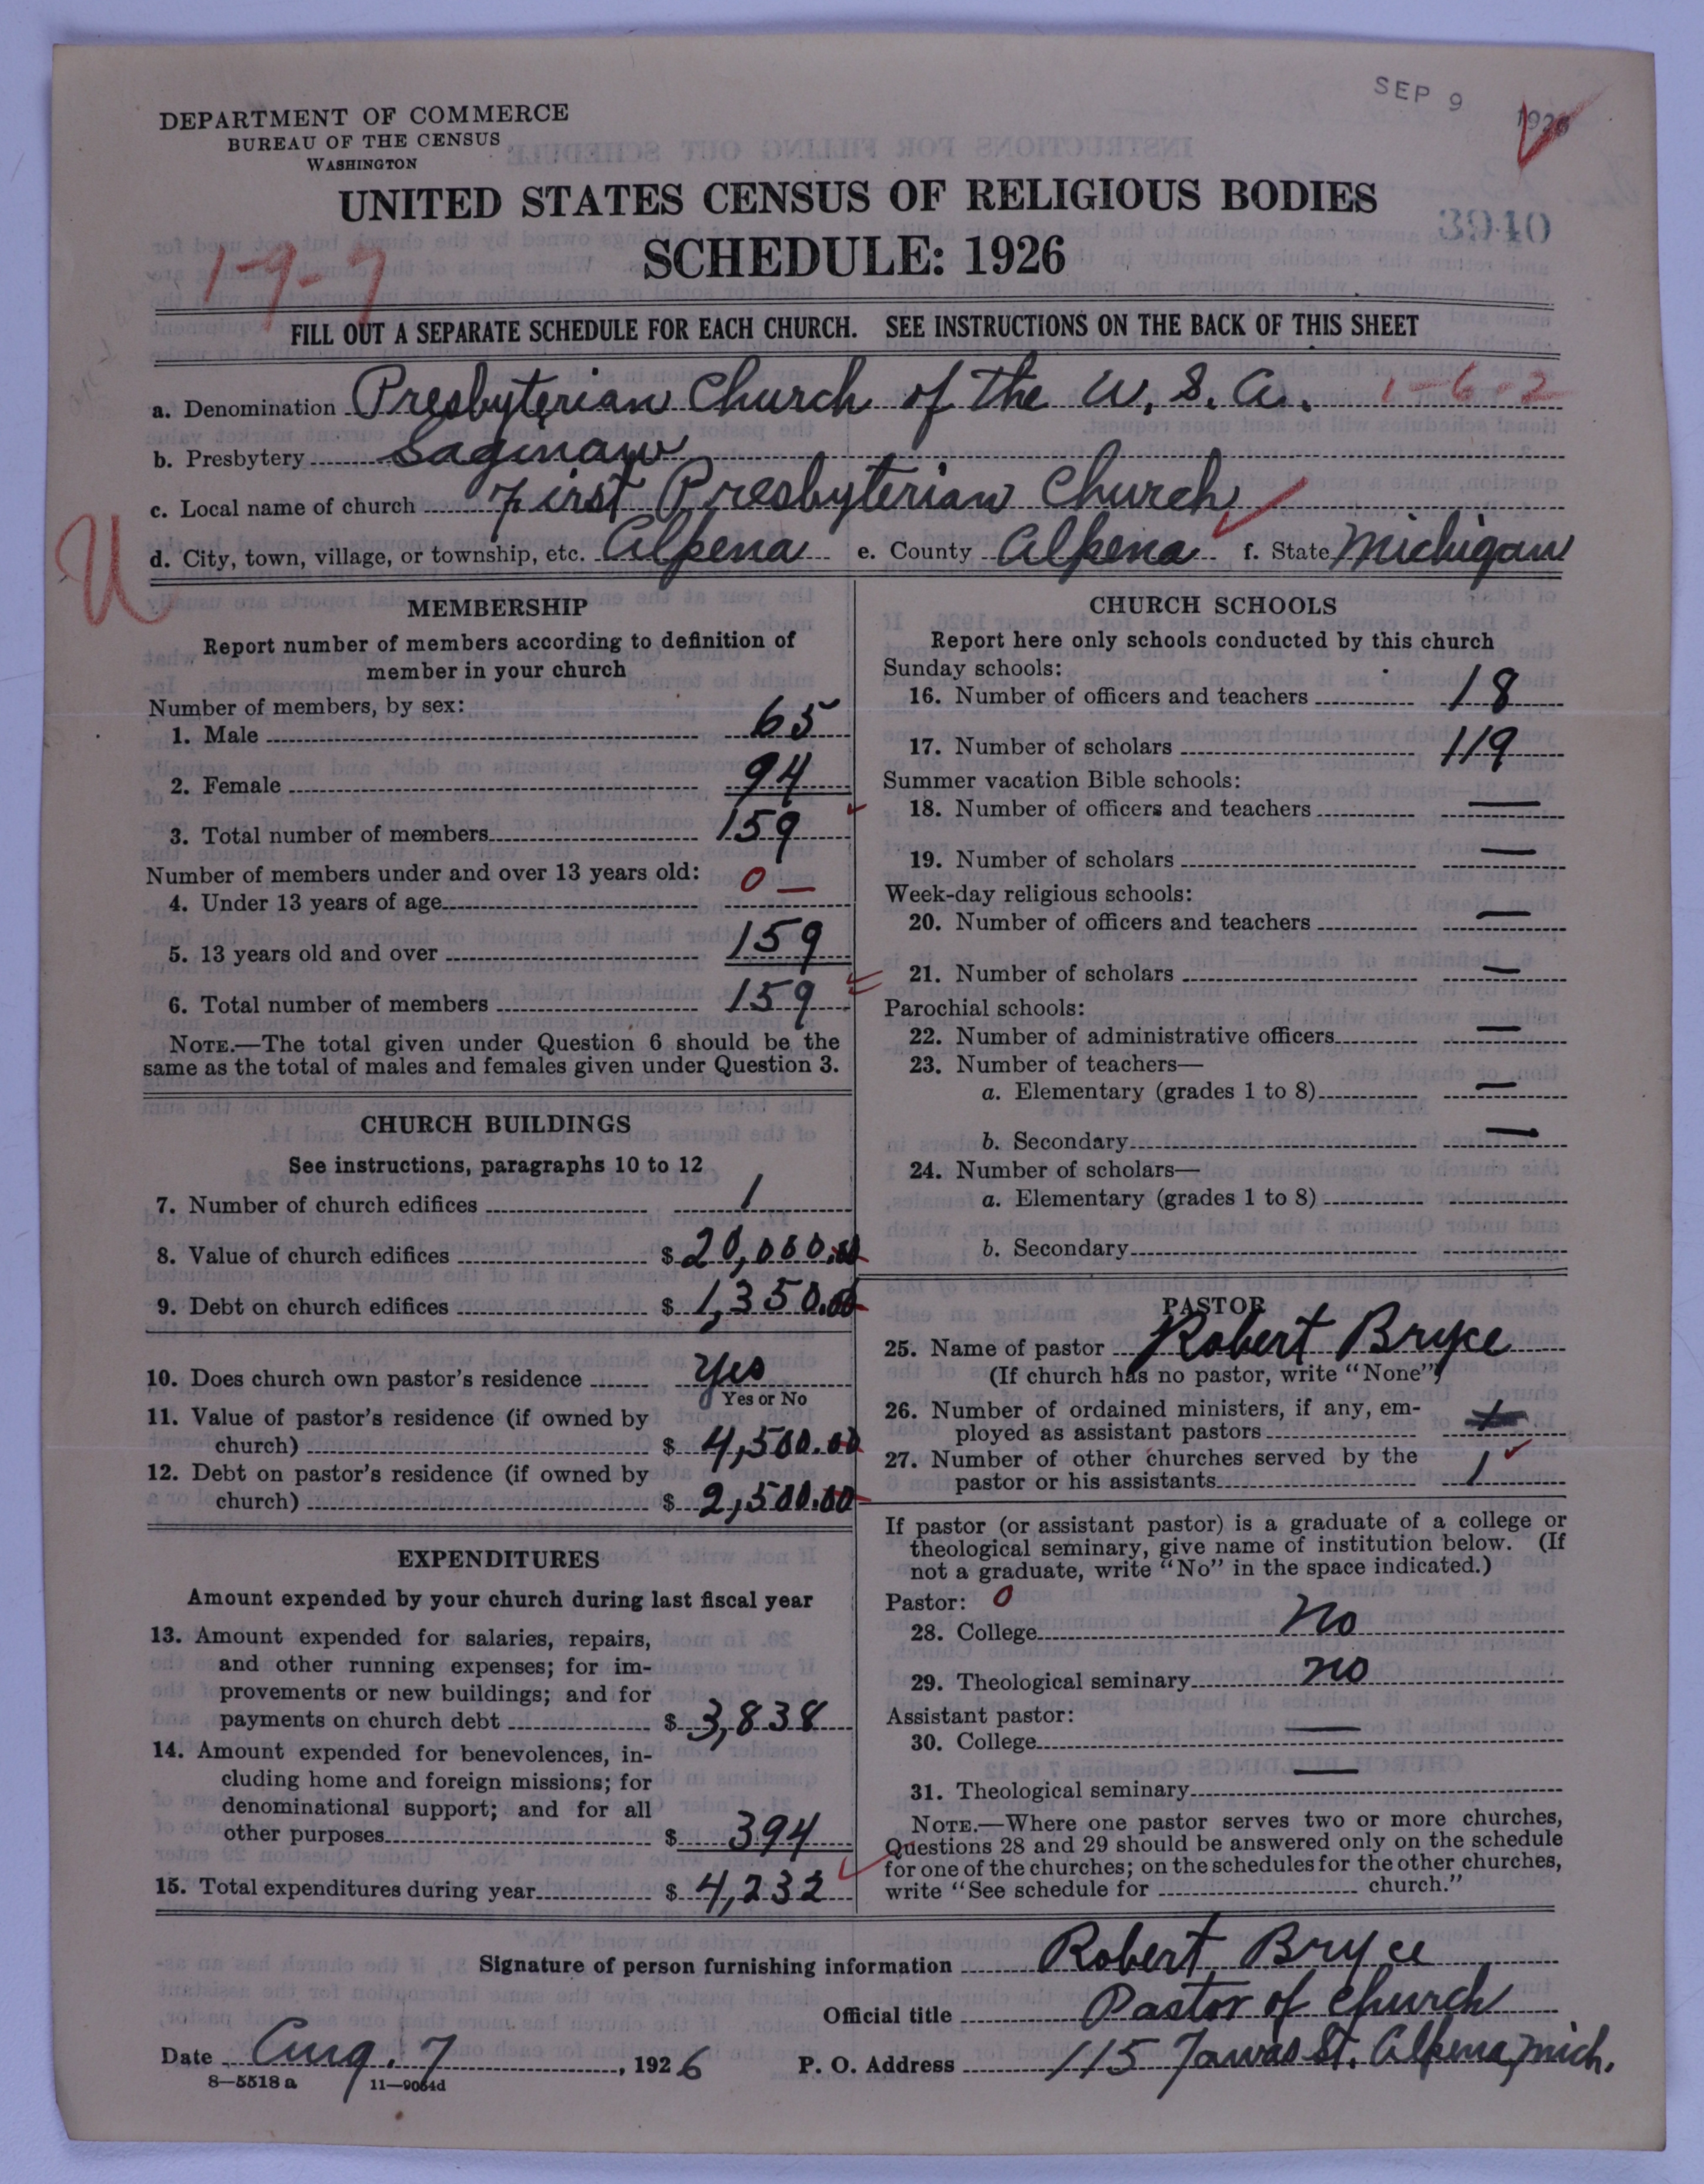 SEP 9 1926
DEPARTMENT OF COMMERCE
BUREAU OF THE CENSUS
WASHINGTON
UNITED STATES CENSUS OF RELIGIOUS BODIES
3940
SCHEDULE: 1926
1-9-7
FILL OUT A SEPARATE SCHEDULE FOR EACH CHURCH. SEE INSTRUCTIONS ON THE BACK OF THIS SHEET
a. Denomination Presbyterian Church of the U.S.A. 1-6-2
b. Presbytery Saginaw
c. Local name of church First Presbyterian Church
U
d. City, town, village, or township, etc. Alpena e. County Alpena f. State Michigan
MEMBERSHIP
Report number of members according to definition of
member in your church
Number of members, by sex:
1. Male 65
2. Female 94
3. Total number of members 159
Number of members under and over 13 years old:
4. Under 13 years of age 0 —
5. 13 years old and over 159
6. Total number of members 159
NOTE.—The total given under Question 6 should be the
same as the total of males and females given under Question 3.
CHURCH BUILDINGS
See instructions, paragraphs 10 to 12
7. Number of church edifices 1
8. Value of church edifices $ 20,000.00
9. Debt on church edifices $ 1,350.00
10. Does church own pastor's residence Yes
Yes or No
11. Value of pastor's residence (if owned by
church) $ 4,500.00
12. Debt on pastor's residence (if owned by
church) $ 2,500.00
EXPENDITURES
Amount expended by your church during last fiscal year
13. Amount expended for salaries, repairs,
and other running expenses; for im-
provements or new buildings; and for
payments on church debt $ 3,838
14. Amount expended for benevolences, in-
cluding home and foreign missions; for
denominational support; and for all
other purposes $ 394
15. Total expenditures during year $ 4,232
CHURCH SCHOOLS
Report here only schools conducted by this church
Sunday schools:
16. Number of officers and teachers 18
17. Number of scholars 119
Summer vacation Bible schools:
18. Number of officers and teachers —
19. Number of scholars —
Week-day religious schools:
20. Number of officers and teachers —
21. Number of scholars —
Parochial schools:
22. Number of administrative officers —
23. Number of teachers—
a. Elementary (grades 1 to 8) —
b. Secondary —
24. Number of scholars—
a. Elementary (grades 1 to 8)
b. Secondary
PASTOR
25. Name of pastor Robert Bryce
(If church has no pastor, write "None")
26. Number of ordained ministers, if any, em-
ployed as assistant pastors
27. Number of other churches served by the
pastor or his assistants 1
If pastor (or assistant pastor) is a graduate of a college or
theological seminary, give name of institution below. (If
not a graduate, write "No" in the space indicated.)
Pastor: 0
28. College No
29. Theological seminary no
Assistant pastor:
30. College —
31. Theological seminary —
NOTE.—Where one pastor serves two or more churches,
Questions 28 and 29 should be answered only on the schedule
for one of the churches; on the schedules for the other churches,
write "See schedule for church."
Signature of person furnishing information Robert Bryce
Official title Pastor of Church
Date Aug. 7, 1926 P. O. Address 115 Tawas St. Alpena, Mich.
8—5518 a 11—9064d